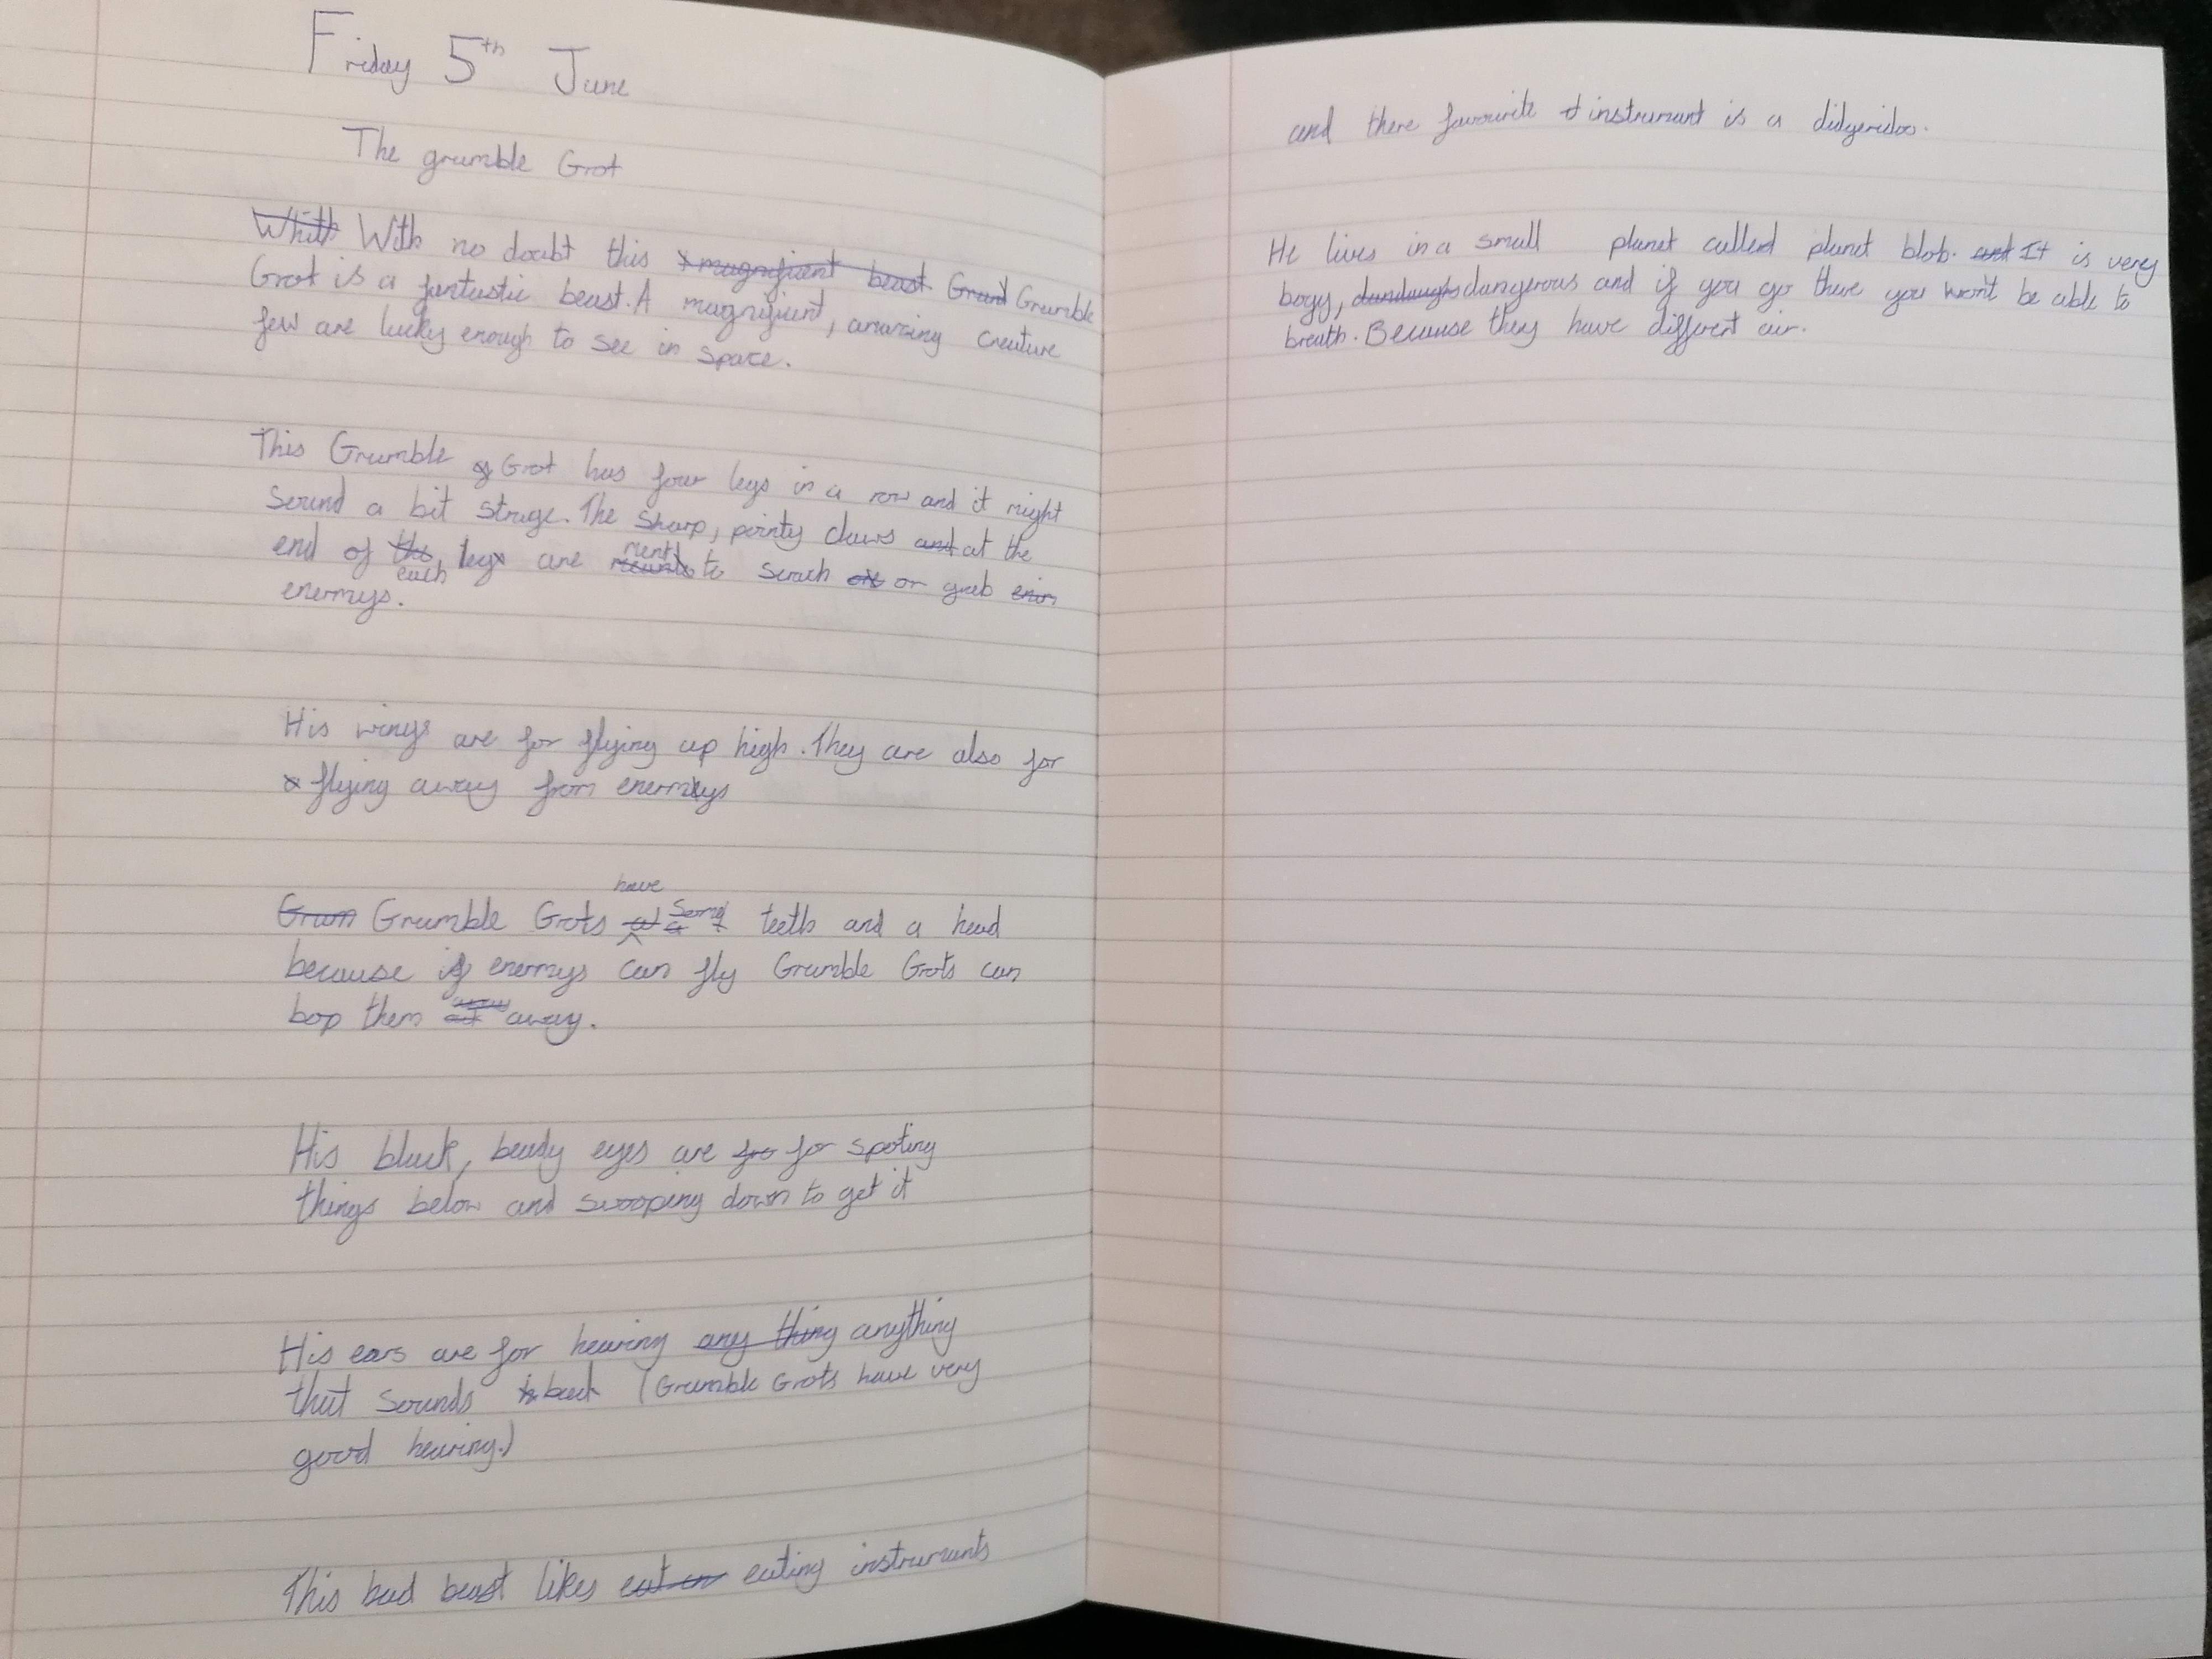 Friday 5th June
The grumble Grot
With no doubt this Grumble
Grot is a fantastic beast. A magnifient, amazing creature
few are lucky enough to see in space.
This Grumble Grot has four legs in a row and it might
sound a bit strage. The sharp, pointy claws at the
end of each leg are ment to scrach or grab
enemys.
His wings are for flying up high. They are also for
flying away from enemys
Grumble Grots have some teeth and a head
because if enemys can fly Grumble Grots can
bop them away.
His black, beady eyes are for spoting
things below and swooping down to get it
His ears are for hearing anything
that sounds bad (Grumble Grots have very
good hearing.)
This bad beast likes eating instruments
and there favourite instrumant is a didgeridoo.
He lives in a small planet called planet blob. It is very
bogy, dangerous and if you go there you won't be able to
breath. Because they have differt air.